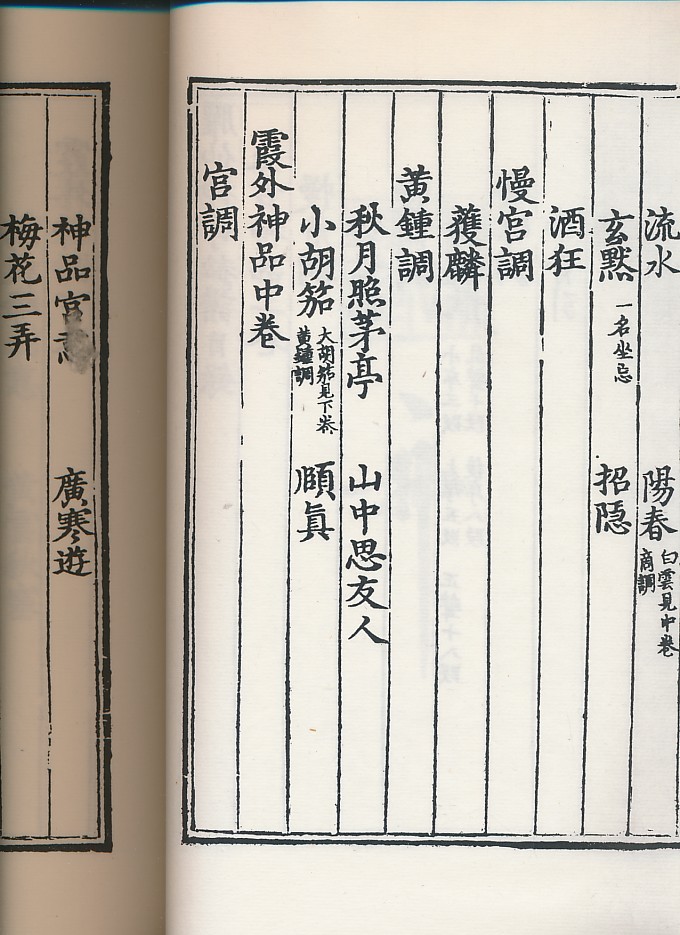 流水 陽春 白雲見中卷商調
玄黙 一名坐忘 招隱
酒狂
慢宮調
獲麟
黃鍾調
秋月照茅亭 山中思友人
小胡笳 大胡笳見下卷黃鍾調 頤眞
霞外神品中卷
宮調
神品宮意 廣寒遊
梅花三弄